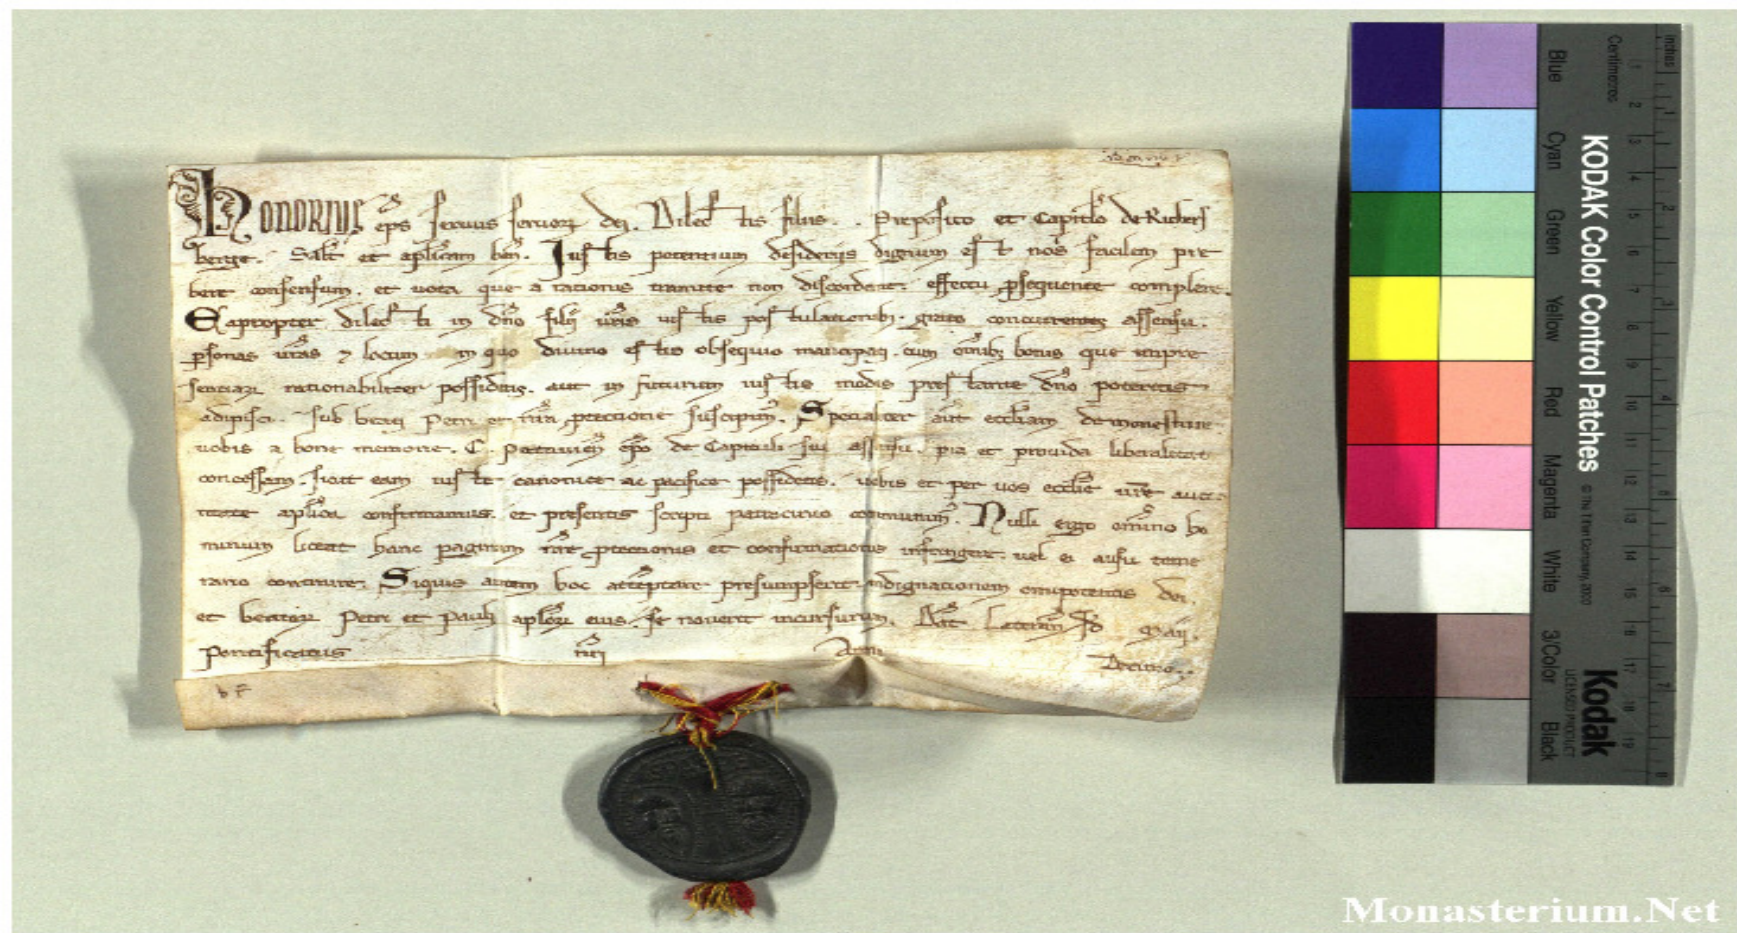 HONORIUS ep̄s seruus seruoꝝ dei. Dilectis filiis . . Preposito et Capitl̄o de Richers
berge. Salt̄ et apl̄icam ben̄. Iustis petentium desideriis dignum est nos facilem pre
bere consensum. et uota que a rationis tramite non discordant effectu ꝓsequente complere.
Eapropter dilecti in dn̄o filii ur̄is iustis postulationibꝫ grato concurrentes assensu.
ꝑsonas ur̄as ⁊ locum in quo diuino estis obsequio mancipati. cum om̄ibꝫ bonis que inpre
sentiaꝝ rationabiliter possidetis. aut in futurum iustis modis prestante dn̄o poteritis
adipisci. sub beati Petri et nr̄a ꝓtectione suscipimꝰ. Specialiter aut̄ eccl̄iam de
uobis a bone memorie. C. Patauien̄ ep̄o de Capituli sui assensu. pia et prouida liberalitate
concessam. sicut eam iuste canonice ac pacifice possidetis. uobis et per uos eccl̄ie ur̄e aucto
ritate apl̄ica confirmamus. et presentis scripti patrocinio communimꝰ. Nulli ergo om̄ino ho
minum liceat hanc paginam nr̄e ꝓtectionis et confirmationis infringere. uel ei ausu teme
rario contraire. Siquis autem hoc attēptare presumpserit indignationem omnipotentis dei.
et beatoꝝ Petri et Pauli apl̄oꝝ eius. se nouerit incursurum. Dat̄ Lateran̄ Id Maii.
Pontificatus nr̄i Anno Decimo.
Blue Cyan Green Yellow Red Magenta White 3/Color Black
KODAK Color Control Patches
© The Tiffen Company, 2000
Kodak
LICENSED PRODUCT
Centimetres
1 2 3 4 5 6 7 8 9 10 11 12 13 14 15 16 17 18 19
Inches
1 2 3 4 5 6 7 8
Monasterium.Net